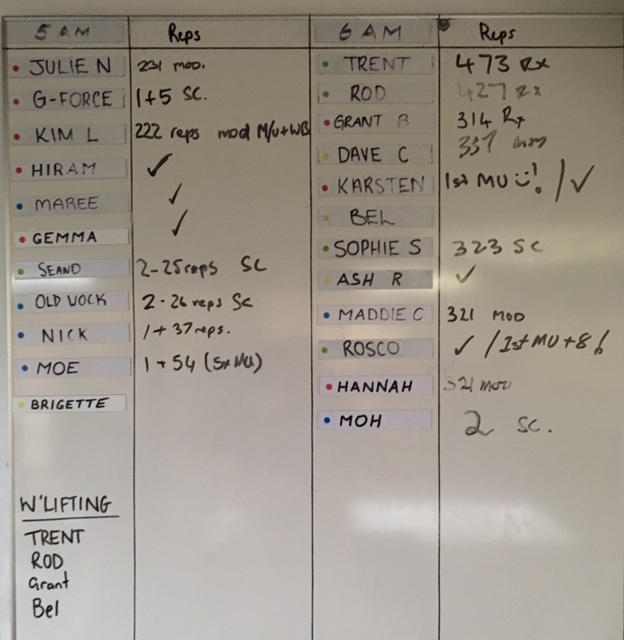 5 AM Reps
JULIE N 231 mod.
G-FORCE 1+5 SC.
KIM L 222 reps mod M/U+WB
HIRAM ✓
MAREE ✓
GEMMA ✓
SEANO 2-25reps SC
OLD JOCK 2-26 reps SC
NICK 1+37reps.
MOE 1+54 (5xMU)
BRIGETTE
W'LIFTING
TRENT
ROD
Grant
Bel
6 AM Reps
TRENT 473 Rx
ROD 427 Rx
GRANT B 314 Rx
DAVE C 337
KARSTEN 1st MU ! / ✓
BEL
SOPHIE S 323 SC
ASH R ✓
MADDIE C 321 MOD
ROSCO ✓ / 1st MU+8!
HANNAH 321 MOD
MOH 2 SC.